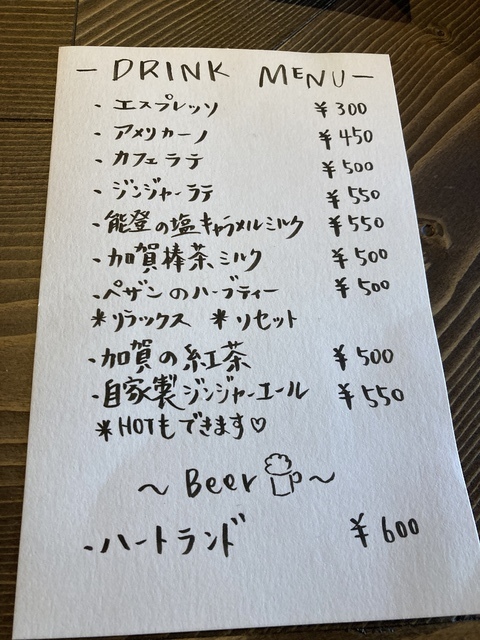 - DRINK MENU -
・エスプレッソ ¥300
・アメリカーノ ¥450
・カフェラテ ¥500
・ジンジャーラテ ¥550
・能登の塩キャラメルミルク ¥550
・加賀棒茶ミルク ¥500
・ペザンのハーブティー ¥500
*リラックス *リセット
・加賀の紅茶 ¥500
・自家製ジンジャーエール ¥550
*HOTもできます♡
~ Beer ~
・ハートランド ¥600